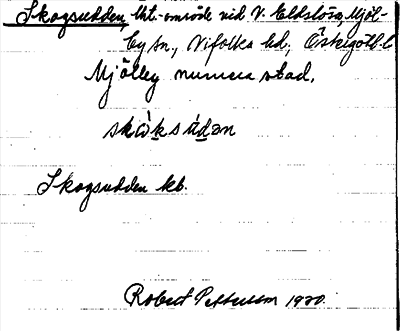 Skogsudden, bkt.-område vid V. Eldslösa, Mjöl-
by sn., Vifolka hd., Östergötl. l.
Mjölby numera stad.
skò̀ksùdən
Skogsudden kb.
Robert Pettersson 1920.